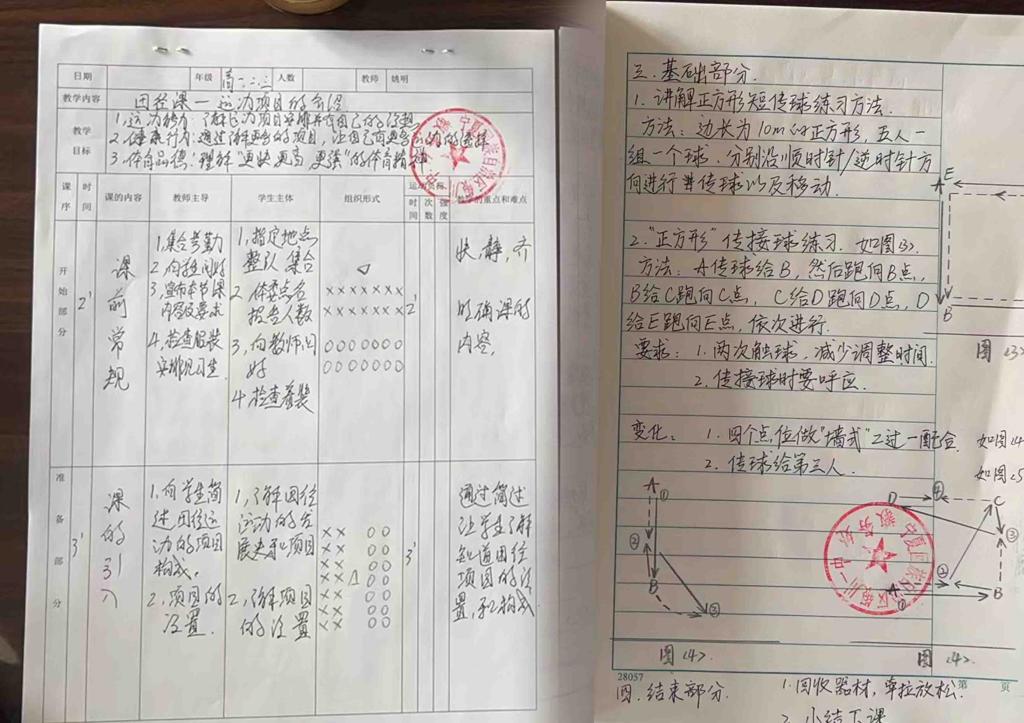 日期 年级 高一.二.三 人数 教师 姚明
教学内容 田径课—运动项目的介绍
教学
目标
1.运动
2.健康行为:通过了解
3.体育品德:理解"更快更高 更强"的体育精神
课序 时间 课的内容 教师主导 学生主体 组织形式 运动负荷 教学的重点和难点
时间 次数 强度
开始部分
2'
课前常规
1,集合考勤
2,向学生问好
3,宣布本节课
内容及要求
4.检查服装
安排见习生.
1,指定地点
整队集合
2.体委点名
报告人数
3,向教师问
好
4.检查着装
××××××
××××××
○○○○○○○
○○○○○○○
2'
快,静,齐
明确课的
内容,
准备部分
3'
课的引入
1,向学生简
述田径运
动的项目
构成,
2,项目的
设置.
1,了解田径
运动的发
展史和项目
2,了解项目
的设置
×× ○○
×× ○○
×× ○○
×× ○○
×× ○○
×× ○○
3'
通过简述
让学生了解
知道田径
项目的设
置,和构成
三.基础部分.
1.讲解正方形短传球练习方法.
方法:边长为10m的正方形,五人一
组一个球.分别沿顺时针/逆时针方
向进行传球以及移动.
2."正方形"传接球练习.如图<3>.
方法:A传球给B,然后跑向B点,
B给C跑向C点,C给D跑向D点,D
给E跑向E点,依次进行.
要求:1.两次触球,减少调整时间.
2.传接球时要呼应.
变化:1.四个点位做"墙式"二过一配合. 如图<4
2.传球给第三人. 如图<5
E
A
B
图<3>
A
①
②
B
③
图<4>.
D
④
C
③
②
A
①
B
图<4>.
28057
第 页
四.结束部分.
1.回收器材,牵拉放松.
2.小结下课